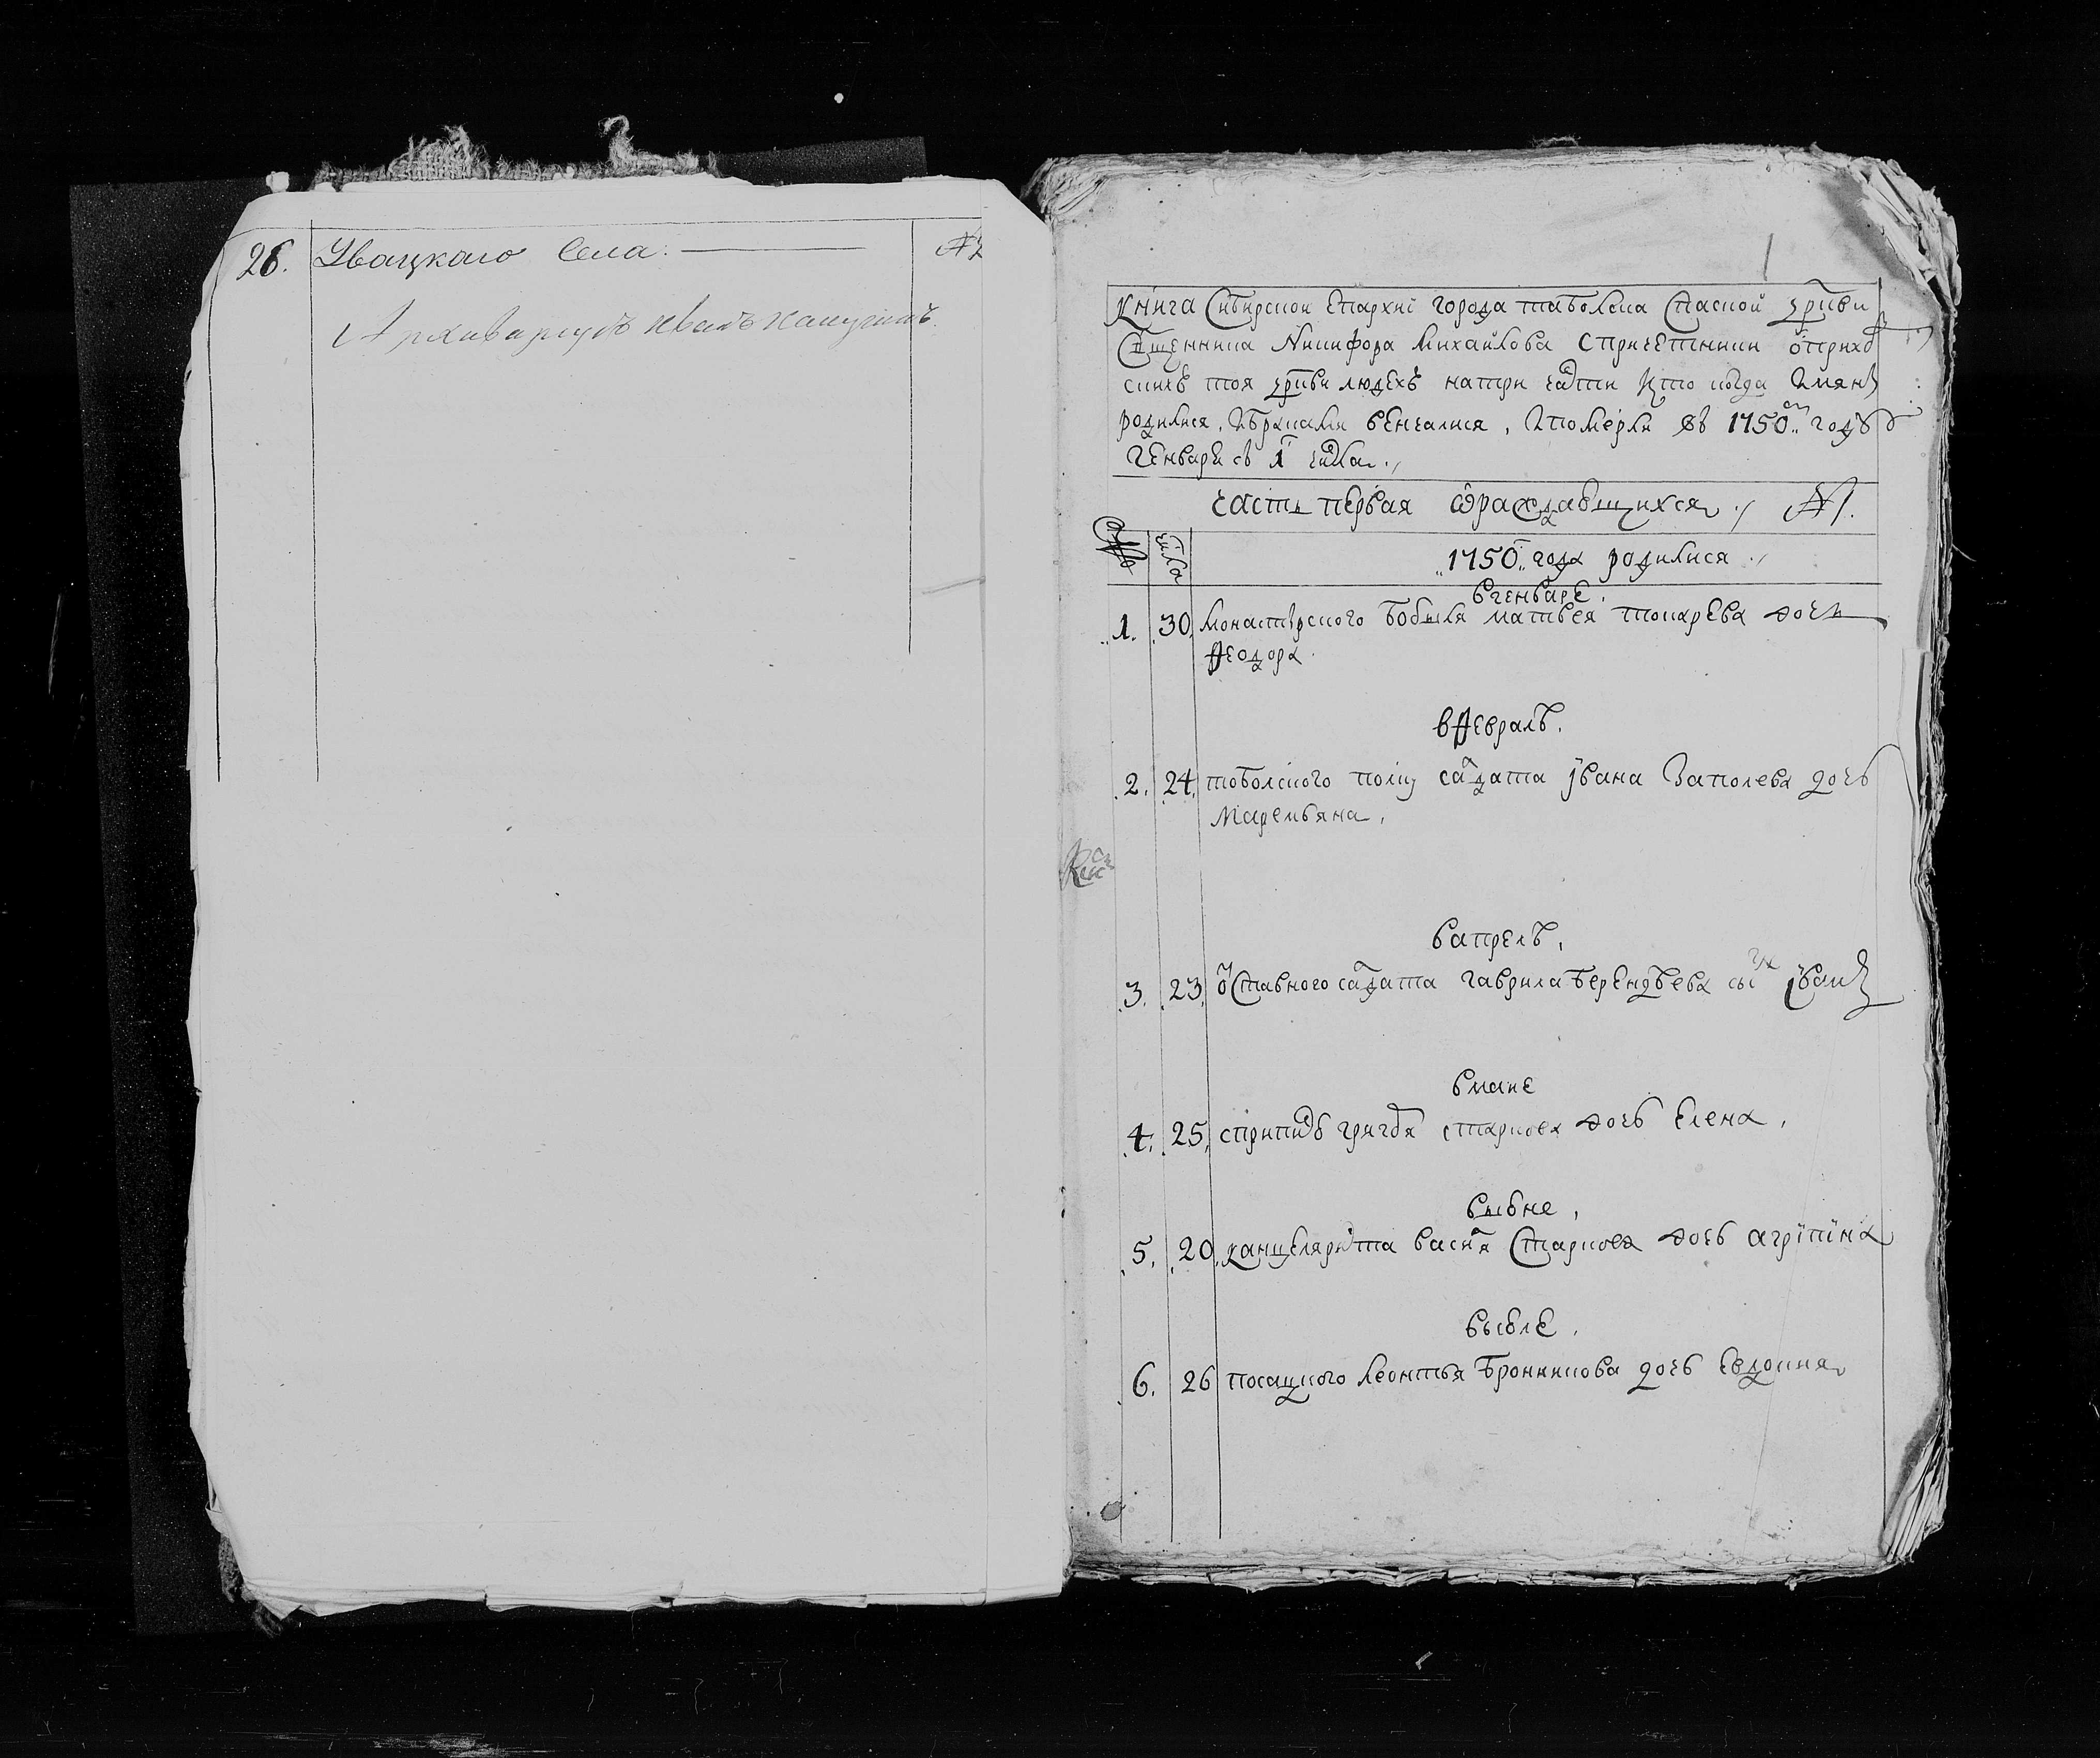 26. Увацкаго Села.
Архиваріусъ Иванъ
Книга Сибирскои Епархіи города таболска Спаской цркви
Сщенника Никифора Михаилова спричетники о прихо
скихъ тоя цркви людехъ натри части кто когда имянъ
родился, и браками венчалися, и померли въ 1750м году
Генваря съ 1 числа.
часть первая о раждавщихся. №1.
№ числа 1750 года родилися
вгенваре.
1. 30 монастрского бобыля матвея токарева дочь
Феодора.
вФеврале.
2. 24. тоболского полку салдата Iвана Заполева дочь
Маремьяна,
вапреле,
3. 23, оставного салдата гаврила Берендеева снъ Iванъ
вмаие
4. 25, григоя старкова дочь Елена,
выюне,
5. 20, канцеляриста васил Старкова дочь агрïпïна
выюле,
6. 26 посацкого леонтья Бронникова дочь Евдокия